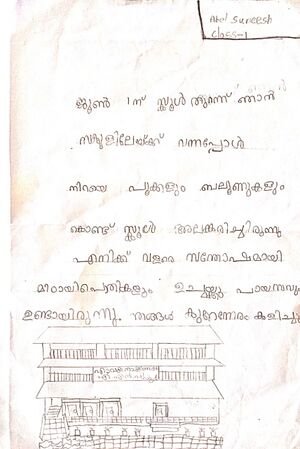 Abel Sureesh
Class-1
ജൂൺ 1ന് സ്കൂൾ തുറന്ന് ഞാൻ
സ്കൂളിലേയ്ക്ക് വന്നപ്പോൾ
നിറയെ പൂക്കളും ബലൂണുകളും
കൊണ്ട് സ്കൂൾ അലങ്കരിച്ചിരുന്നു
എനിക്ക് വളരെ സന്തോഷമായി
ഉച്ചയ്ക്കു പായസവും
ഉണ്ടായിരുന്നു. ഞങ്ങൾ കുറേനേരം കളിച്ചു